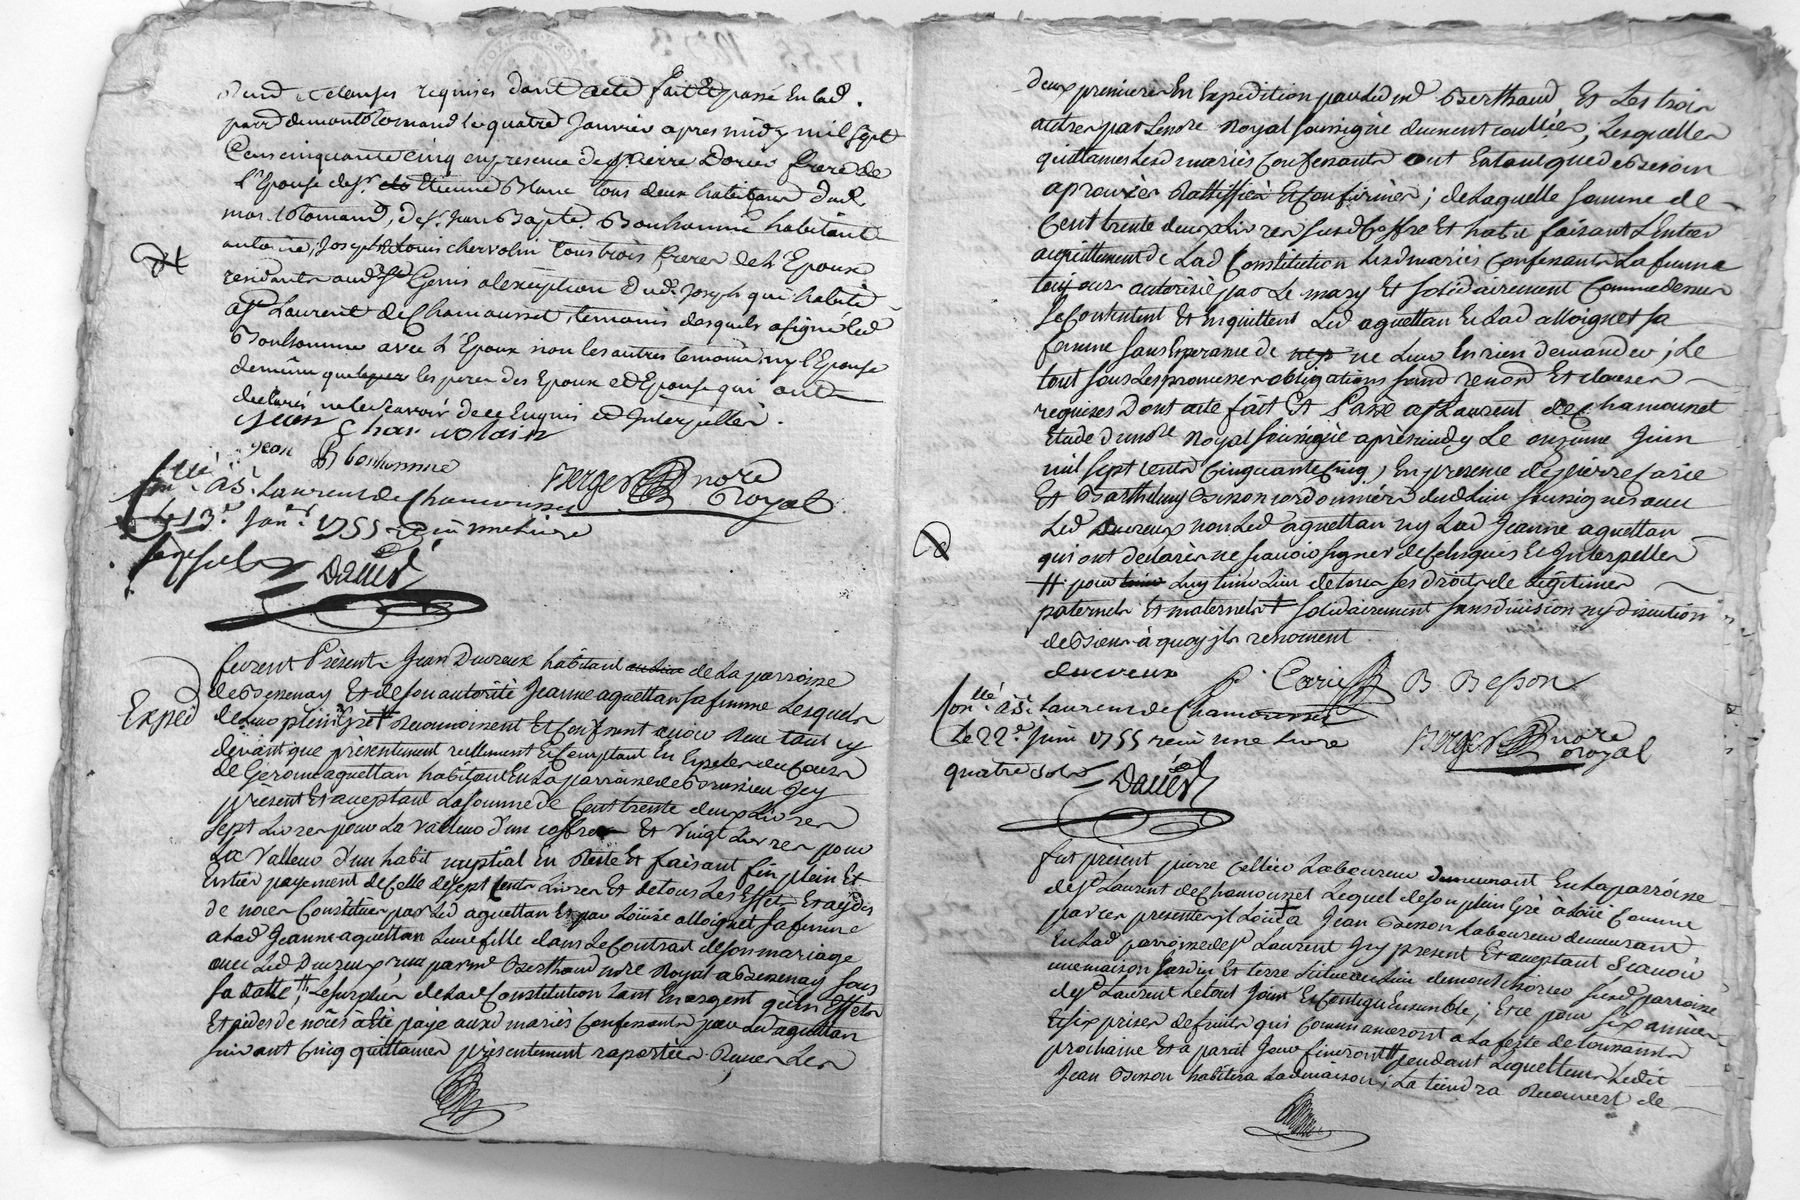 Rend et clauses requises dont acte fait et passé en lad.
parr de montRomand le quatre Janvier apres midy mil sept
Cens cinquante cinq en presence de sr pierre Dorier frere de
L'Epouse de sr. Etienne Blanc tous deux habitans dud.
montRomand, de sr. Jean Bapte. Bonhomme habitant
antoine, Joseph et Louis chervolin tous trois freres de L'Epoux
residants aud. Genis a l'exception dud. Joseph qui habite
a st Laurent de Chamousset, temoins desquels a signé led
Bonhomme avec L'Epoux non les autres temoins ny l'Epouse
de même que les peres des Epoux et Epouse qui ont
declarés ne le scavoir de ce Enquis et Interpellés.
Jean Charvolain
Jean B bonhomme
Berger nore Royal
con.llé à St. Laurens de Chamousset
Le 13e. Janr. 1755 reçu une livre
Daver
furent Présents Jean Ducreux habitant de la parroisse
de Bessenay Et de son autorité Jeanne aguettan sa femme Lesquels
de Leur plein Gré Reconnoissent Et Confessent avoir Reçu tant cy
devant que présentement reellement Et Comptant En Especes du Cours
de Gerome aguettan habitant En La parroisse de Brussieu Icy
présent Et acceptant La somme de Cent trente deux Livres
sept Livres pour La valleur d'un coffre Et vingt Livres pour
La Valleur d'un habit nuptial En Reste Et faisant fin plein Et
Entier payement de Celle de sept Cents Livres Et de tous Les Effets Et aydes
de noces Constitués par Led aguettan Et par Loüise alloignet sa femme
a Lad Jeanne aguettan Leur fille dans Le Contrat de son mariage
avec Led Ducreux reçu par me Berthaud nore Royal a Bessenay sous
sa datte ; Le surplus de Lad Constitution tant En argent qu'en Effets
Et aides de nôces à Eté payé auxd mariés Confessants par Led aguettan
suivant Cinq quittances présentement raportées Reçues Les
Exped
deux premieres En Expedition par Led me Berthaud Et Les trois
autres par Le nore Royal soussigné duement controllées, Lesquelles
quittances Lesd mariés Confessants ont En tant que de Besoin
aprouvées Rattiffiée Et Confirmées ; de Laquelle somme de
Cent trente deux Livres susd Coffre Et habit faisant L'entier
acquittement de Lad Constitution Lesd mariés Confessants La femme
toujours autorisée par Le mary Et solidairement Comme dessus
se Contentent Et En quittent Led aguettan Et Lad alloignet sa
femme sans Esperance de ne Leur En rien demander ; Le
tout sous Les promesses obligations soumd renond Et clauses
requises Dont acte fait Et Passé a st Laurent de Chamousset
Etude du nore Royal soussigné après midy Le onzieme Juin
mil sept cents Cinquante Cinq, En presence de pierre Carie
Et Barthelemy Besson cordonniers dud Lieu soussignés avec
Led Ducreux non Led aguettan ny Lad Jeanne aguettan
qui ont declarés ne scavoir signer de Ce Enquis Et Interpellés
# pour Luy tenir Lieu de tous ses droits de Légitimes
paternels Et maternels + solidairement sans division ny discution
de Biens à quoy ils renoncent
ducreux
P. Carie
B Besson
con.llé à St. Laurens de Chamousset
Le 22e. Juin 1755 reçu une livre
quatre sols
Daver
Berger nore Royal
fut présent pierre Cellier Laboureur demeurant En La parroisse
de st Laurent de Chamousset Lequel de son plein Gré à Loüé Comme
par ces presentes il Loüe a Jean Besson Laboureur demeurant
En Lad parroisse de st Laurent Icy present Et acceptant Scavoir
une maison Jardin Et terre situés au Lieu de montchorier susd parroisse
de st Laurent Le tout Joint Et Contigu Ensemble ; Et ce pour six années
Et six prises de fruits qui Commanceront a La feste de toussaints
prochaine Et a pareil Jour finiront # pendant Lequel tems Ledit
Jean Besson habitera Lad maison ; La tiendra Recouvert de